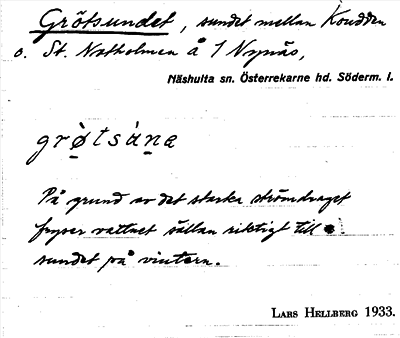 Grötsundet, sundet mellan Koudden
o. St. Notholmen å 1 Nynäs,
Näshulta sn. Österrekarne hd. Söderm. l.
grø̀tsùna
På grund av det starka strömdraget
fryser vattnet sällan riktigt till i
sundet på vintern.
LARS HELLBERG 1933.